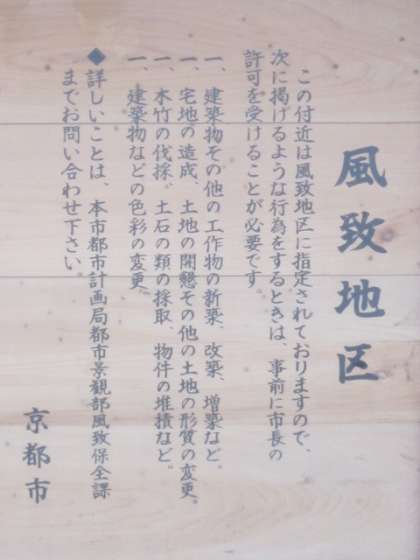 風致地区
この付近は風致地区に指定されておりますので、
次に掲げるような行為をするときは、事前に市長の
許可を受けることが必要です。
一、建築物その他の工作物の新築、改築、増築など。
一、宅地の造成、土地の開懇その他の土地の形質の変更。
一、木竹の伐採、土石の類の採取、物件の堆積など。
一、建築物などの色彩の変更。
◆詳しいことは、本市都市計画局都市景観部風致保全課
までお問い合わせ下さい。
京都市